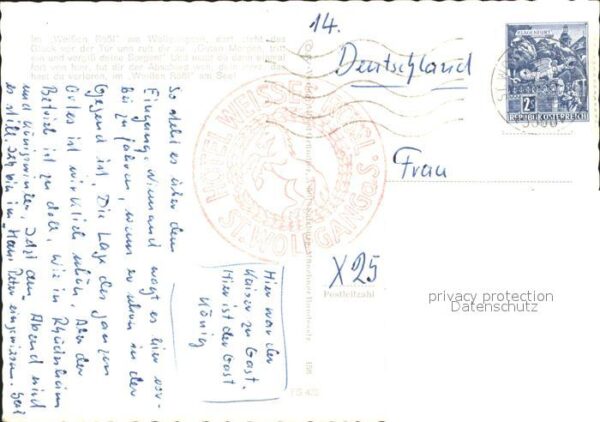 Im „Weißen Rößl" am Wolfgangsee, dort steht das
Glück vor der Tür und ruft dir zu: „Guten Morgen, tritt
ein und vergiß deine Sorgen!" Und mußt du dann einmal
fort von hier, tut der Abschied dir
hast du verloren, im „Weißen Rößl" am See!
So steht es über dem
Eingang. Niemand wagt es hier vor-
bei zu fahren, wenn er schon in der
Gegend ist. Die Lage des ganzen
Ortes ist wirklich schön, Aber der
Betrieb ist zu doll, wie in Rüdesheim
und Königswinter. Jetzt am Abend wird
es still. Ich bin im "Haus Peter" eingewiesen.
Hier war der
Kaiser zu Gast.
Hier ist der Gast
König
HOTEL WEISSES RÖSSL
ST. WOLFGANG a. S.
14.
Deutschland
Frau
X25
Postleitzahl
KLAGENFURT
2 S
REPUBLIK ÖSTERREICH
privacy protection
Datenschutz